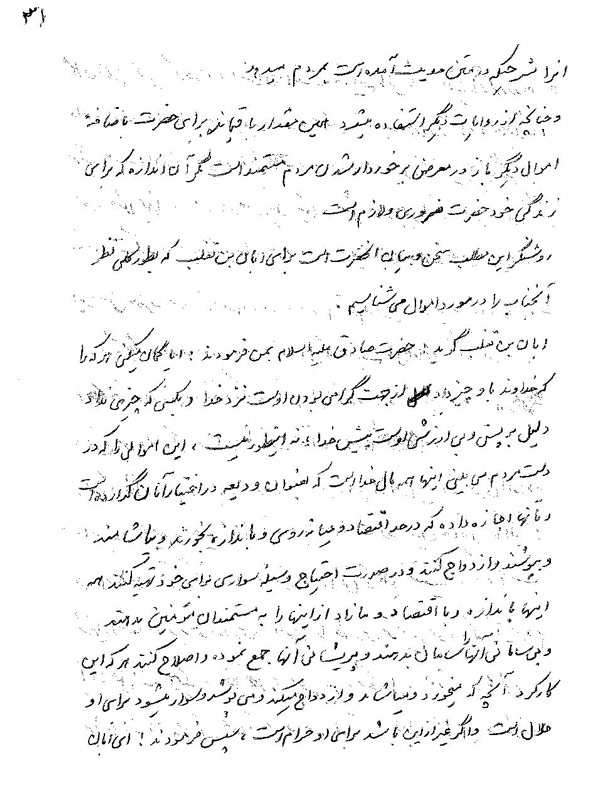 ۳۱
انرا شرحیکه در متن حدیث آمده است بمردم میدهد
و چنانچه از روایات دیگر استفاده میشود همین مقدار باقیمانده برای حضرت باضافهٔ
اموال دیگر باز در معرض برخوردار شدن مردم مستمند است مگر آن اندازه که برای
زندگی خود حضرت ضروری ولازم است
روشنگر این مطلب سخن و بیان آنحضرت است برای ابان بن تغلب که بطور کلی نظر
آنجناب را در مورد اموال می شناسیم .
ابان بن تغلب گوید : حضرت صادق علیه السلام بمن فرمودند : ایا گمان میکنی هر که را
که خداوند باو چیز داده از جهت گرامی بودن اوست نزد خدا و بکسی که چیزی نداده
دلیل بر پستی و بی ارزشی اوست پیش خدا ؛ نه اینطور نیست ، این اموالی را که در
دست مردم می بینی اینها همه مال خداست که بعنوان ودیعه در اختیار آنان گذارده است
و بآنها اجازه داده که در حد اقتصاد و میانه روی و باندازه بخورند و بیاشامند
و بپوشند و ازدواج کنند و در صورت احتیاج وسیله سواری برای خود تهیه کنند همه
اینها باندازه و با اقتصاد و مازاد از اینها را به مستمندان مؤمنین بدهند
و بی سامانی آنها را سامان بدهند و پریشانی آنها جمع نموده و اصلاح کنند هر که این
کار کرد آنچه که میخورد و میاشامد و ازدواج میکند و می پوشد و سوار میشود برای او
حلال است و اگر غیر از این باشد برای او حرام است ، سپس فرمودند : ای ابان